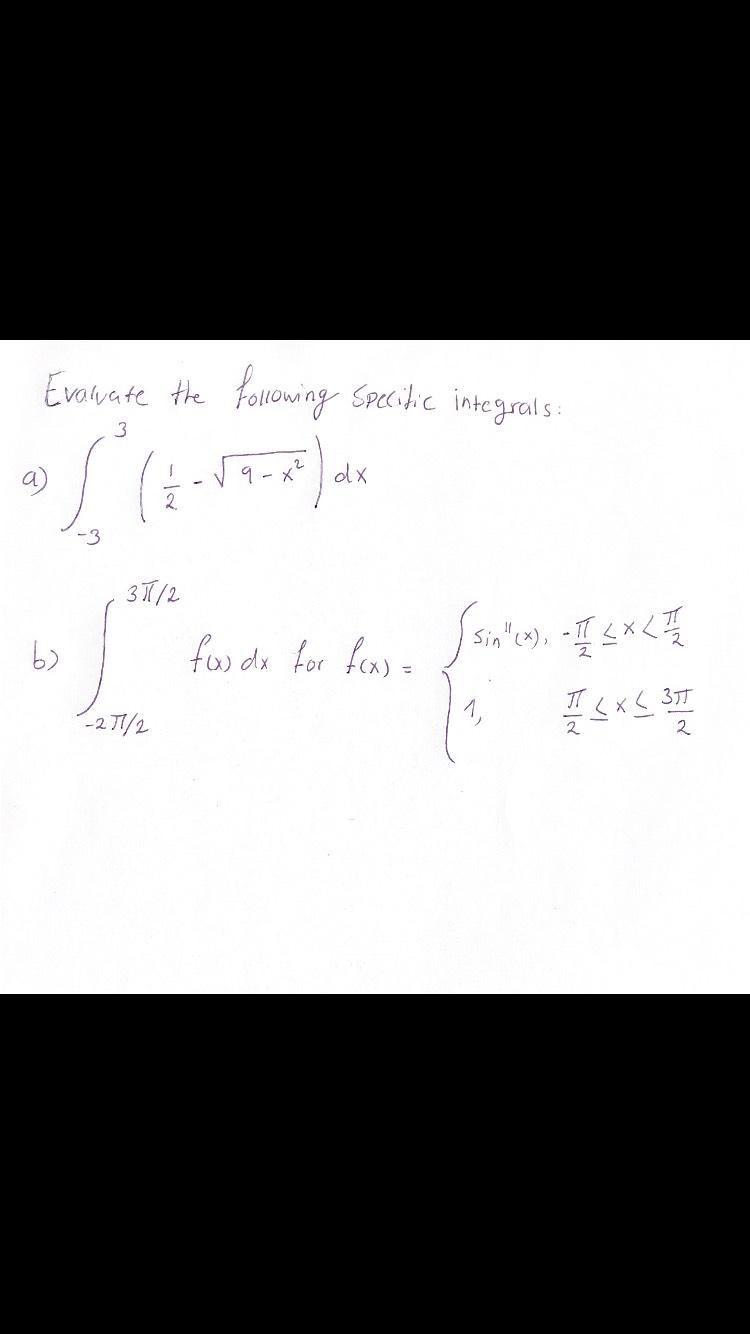 Evaluate the following specific integrals:
a) ∫_{-3}^{3} (1/2 - √(9 - x²)) dx
b) ∫_{-2π/2}^{3π/2} f(x) dx for f(x) = { sin¹¹(x), -π/2 ≤ x < π/2
1, π/2 ≤ x ≤ 3π/2